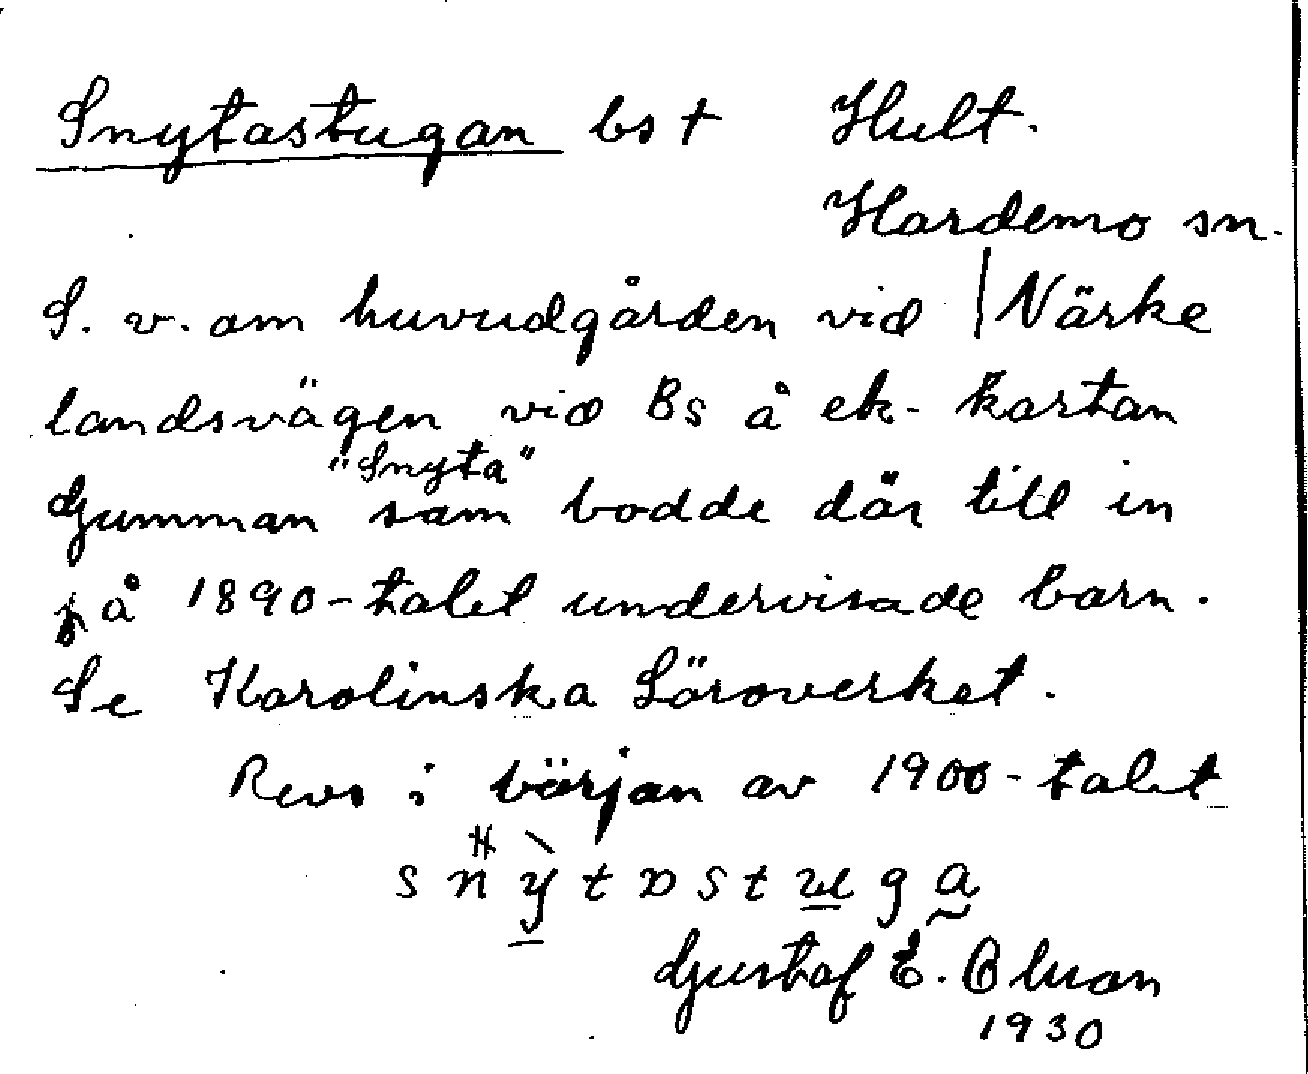 Snytastugan bst Hult.
Hardemo sn.
S. v. om huvudgården vid | Närke
landsvägen vid Bs å ek-kartan
"Snyta"
Gumman som bodde där till in
på 1890-talet undervisade barn.
Se Karolinska Läroverket.
Revs i början av 1900-talet
Gustaf E. Olson
1930